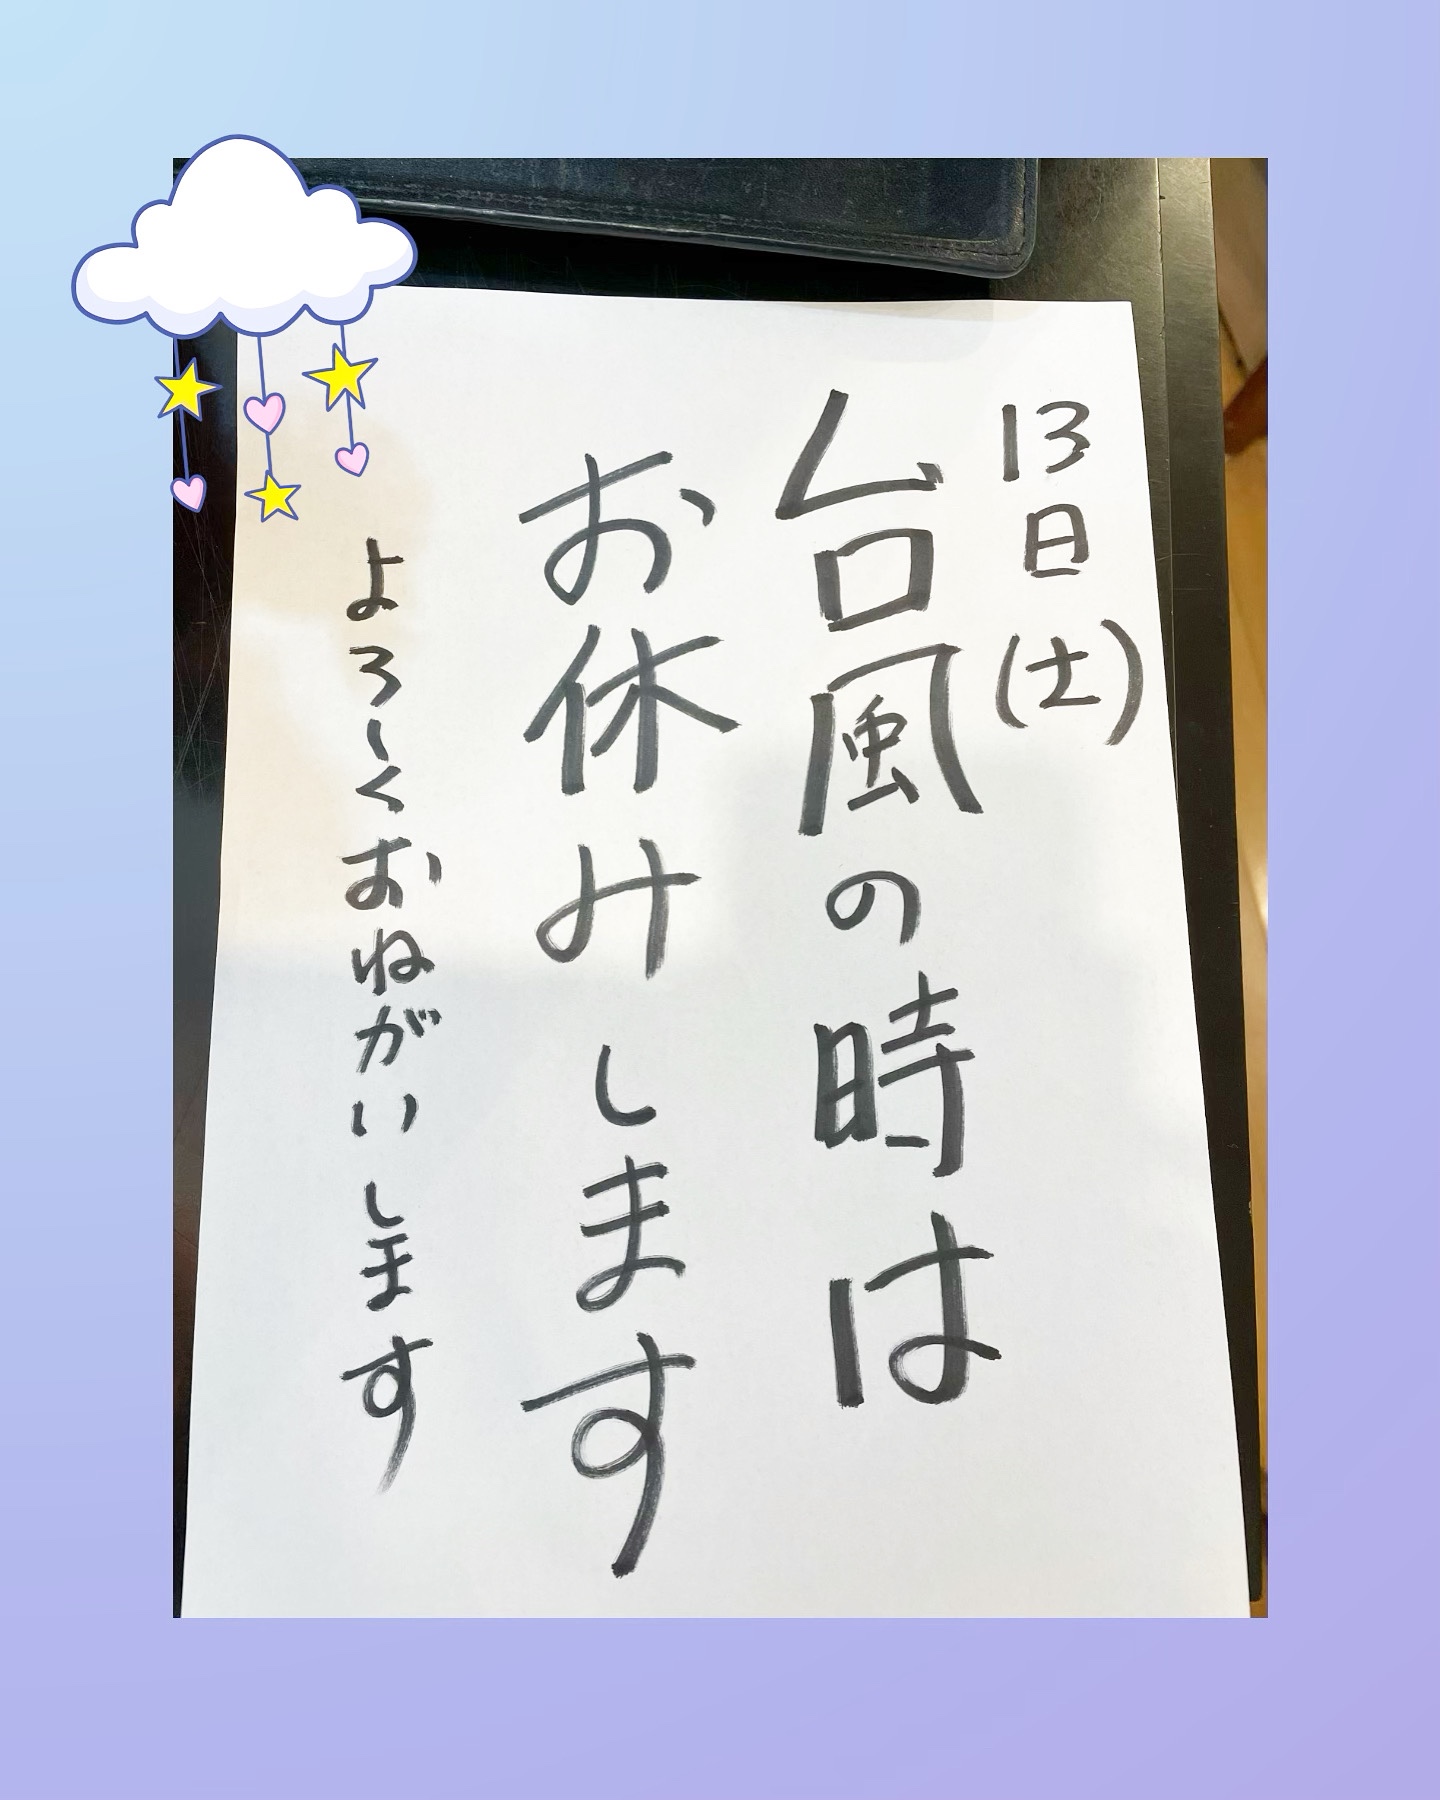 13日(土)
台風の時は
お休みします
よろしくおねがいします